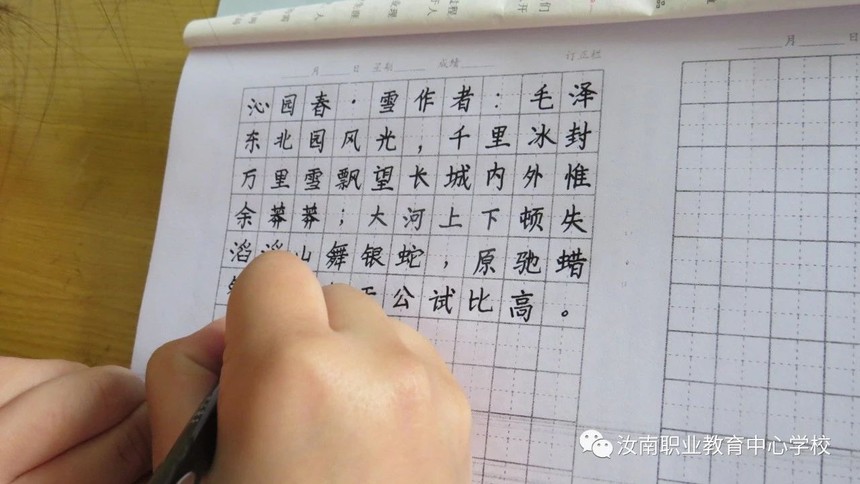 月 日 星期 成绩 订正栏
沁园春·雪作者：毛泽
东北园风光，千里冰封
万里雪飘望长城内外惟
余莽莽；大河上下顿失
滔滔山舞银蛇，原驰蜡
公试比高。
月 日
汝南职业教育中心学校